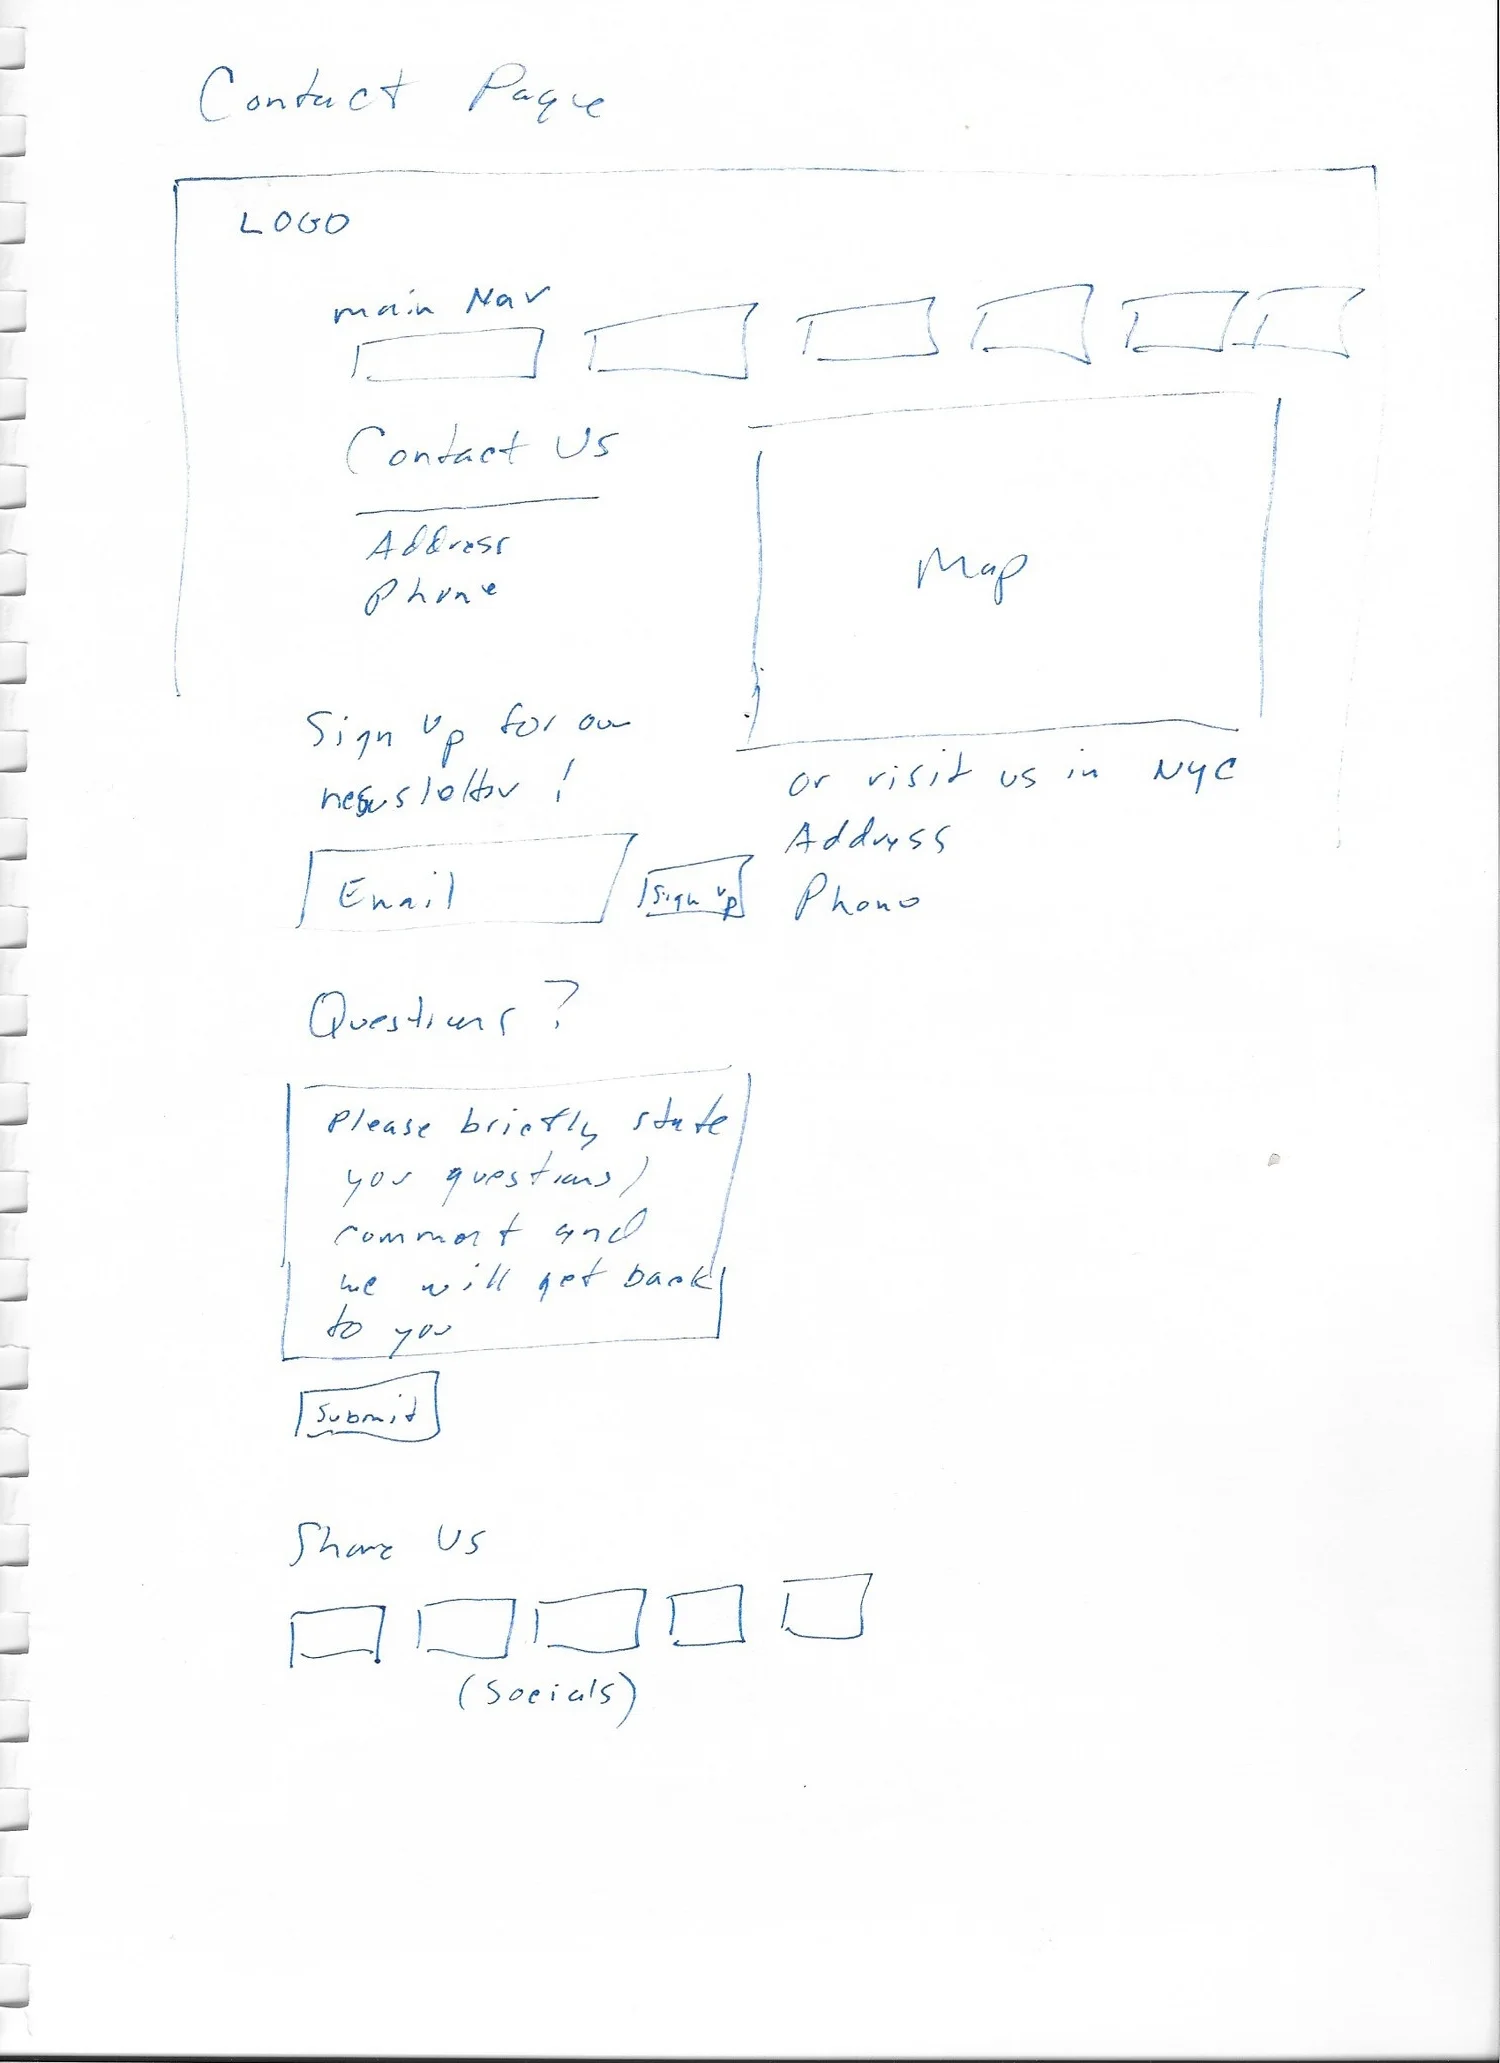 Contact Page
LOGO
main Nav
Contact Us
Address
Phone
Map
Sign up for our
newsletter!
Email
Sign up
or visit us in NYC
Address
Phone
Questions?
Please briefly state
your questions/
comment and
we will get back
to you
Submit
Share Us
(Socials)